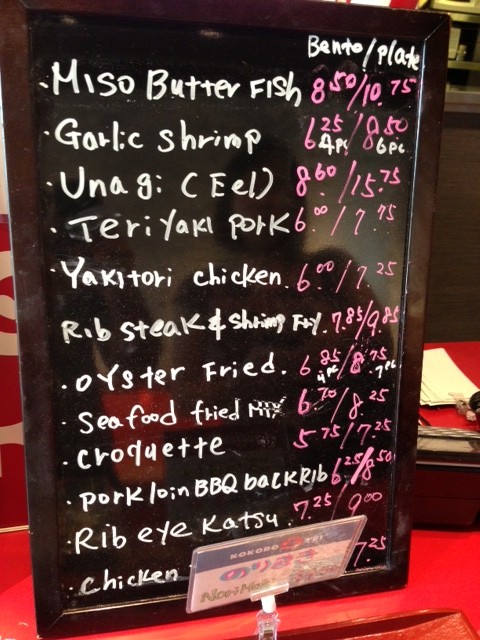 Bento/Plate
· Miso Butter Fish 8.50/10.75
· Garlic shrimp 6.25/8.50
4pc 6pc
· Unagi (Eel) 8.60/15.75
· Teriyaki pork 6.00/7.75
· Yakitori chicken. 6.00/7.25
Rib steak & shrimp Fry. 7.85/9.85
· Oyster Fried. 6.85/8.75
4pc 7pc
· Seafood fried mix 6.70/8.25
· Croquette 5.75/7.25
· Pork loin BBQ back Rib 6.25/8.50
· Rib eye Katsu. 7.25/9.00
· Chicken 7.25
KOKORO TEI